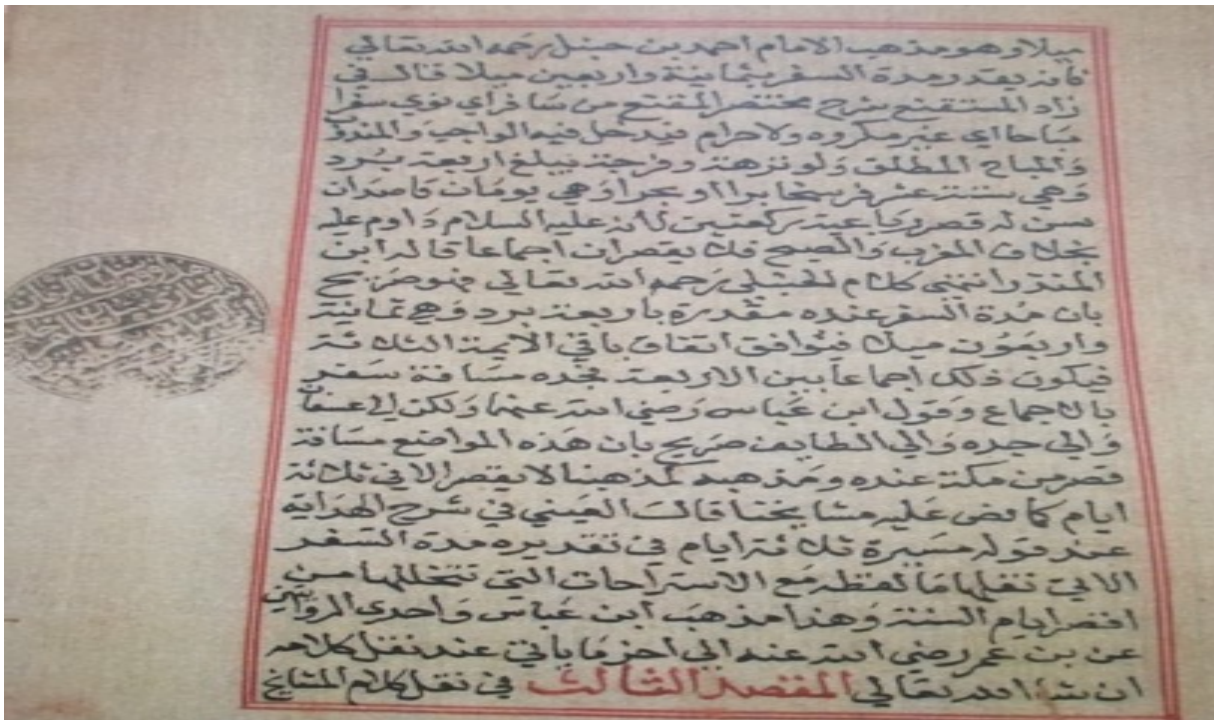 ميلا وهو مذهب الامام احمد بن حنبل رحمه الله تعالي
فانه يقدر مدة السفر بثمانية واربعين ميلا قال في
زاد المستقنع شرح مختصر المقنع من سافر اي نوي سفرا
مباحا اي غير مكروه ولا حرام فيدخل فيه الواجب والمندوب
والمباح المطلق ولو نزهة وفرجة يبلغ اربعة برد
وهي ستة عشر فرسخا برا او بحرا وهي يومان قاصدان
سن له قصر رباعية ركعتين لانه عليه السلام داوم عليه
بخلاف المغرب والصبح فلا يقصران اجماعا قاله ابن
المنذر انتهي كلام الحنبلي رحمه الله تعالي فهو صريح
بان مدة السفر عنده مقدرة باربعة برد وهي ثمانية
واربعون ميلا فتوافق اتفاق باقي الايمة الثلاثة
فيكون ذلك اجماعا بين الاربعة فجده مسافة سفر
بالاجماع وقول ابن عباس رضي الله عنهما ولكن الي عسفان
والي جده والي الطايف صريح بان هذه المواضع مسافة
قصر من مكة عنده ومذهبه كمذهبنا لا يقصر الا في ثلاثة
ايام كما نص عليه مشايخنا قال العيني في شرح الهداية
عند قوله مسيرة ثلاثة ايام في تقديره مدة السفر
الاتي نقلها ما لفظه مع الاستراحات التي تتخللها من
اقصر ايام السنة وهذا مذهب ابن عباس واحدي الروايتين
عن بن عمر رضي الله عنه الي اخر ما ياتي عند نقل كلامه
ان شا الله تعالي المقصد الثالث في نقل كلام المشايخ